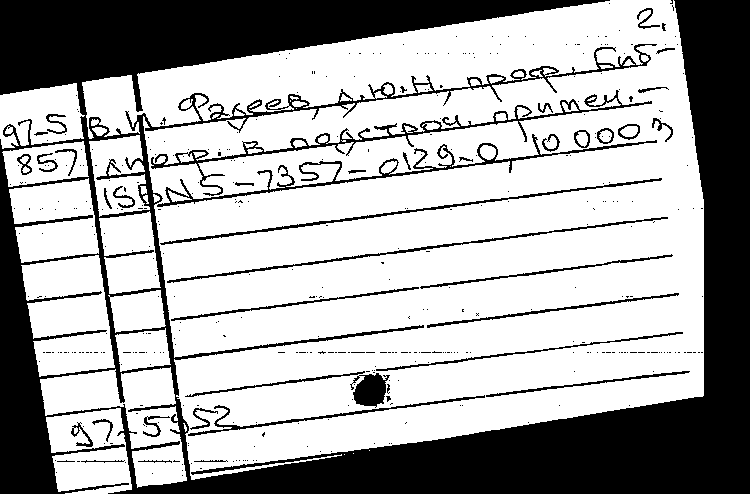 2.
97-5 В.И. Фадеев, д.ю.н., проф. Биб-
857 лиогр. в подстроч. примеч. -
ISBN 5-7357-0129-0, 10 000 э
97-5952